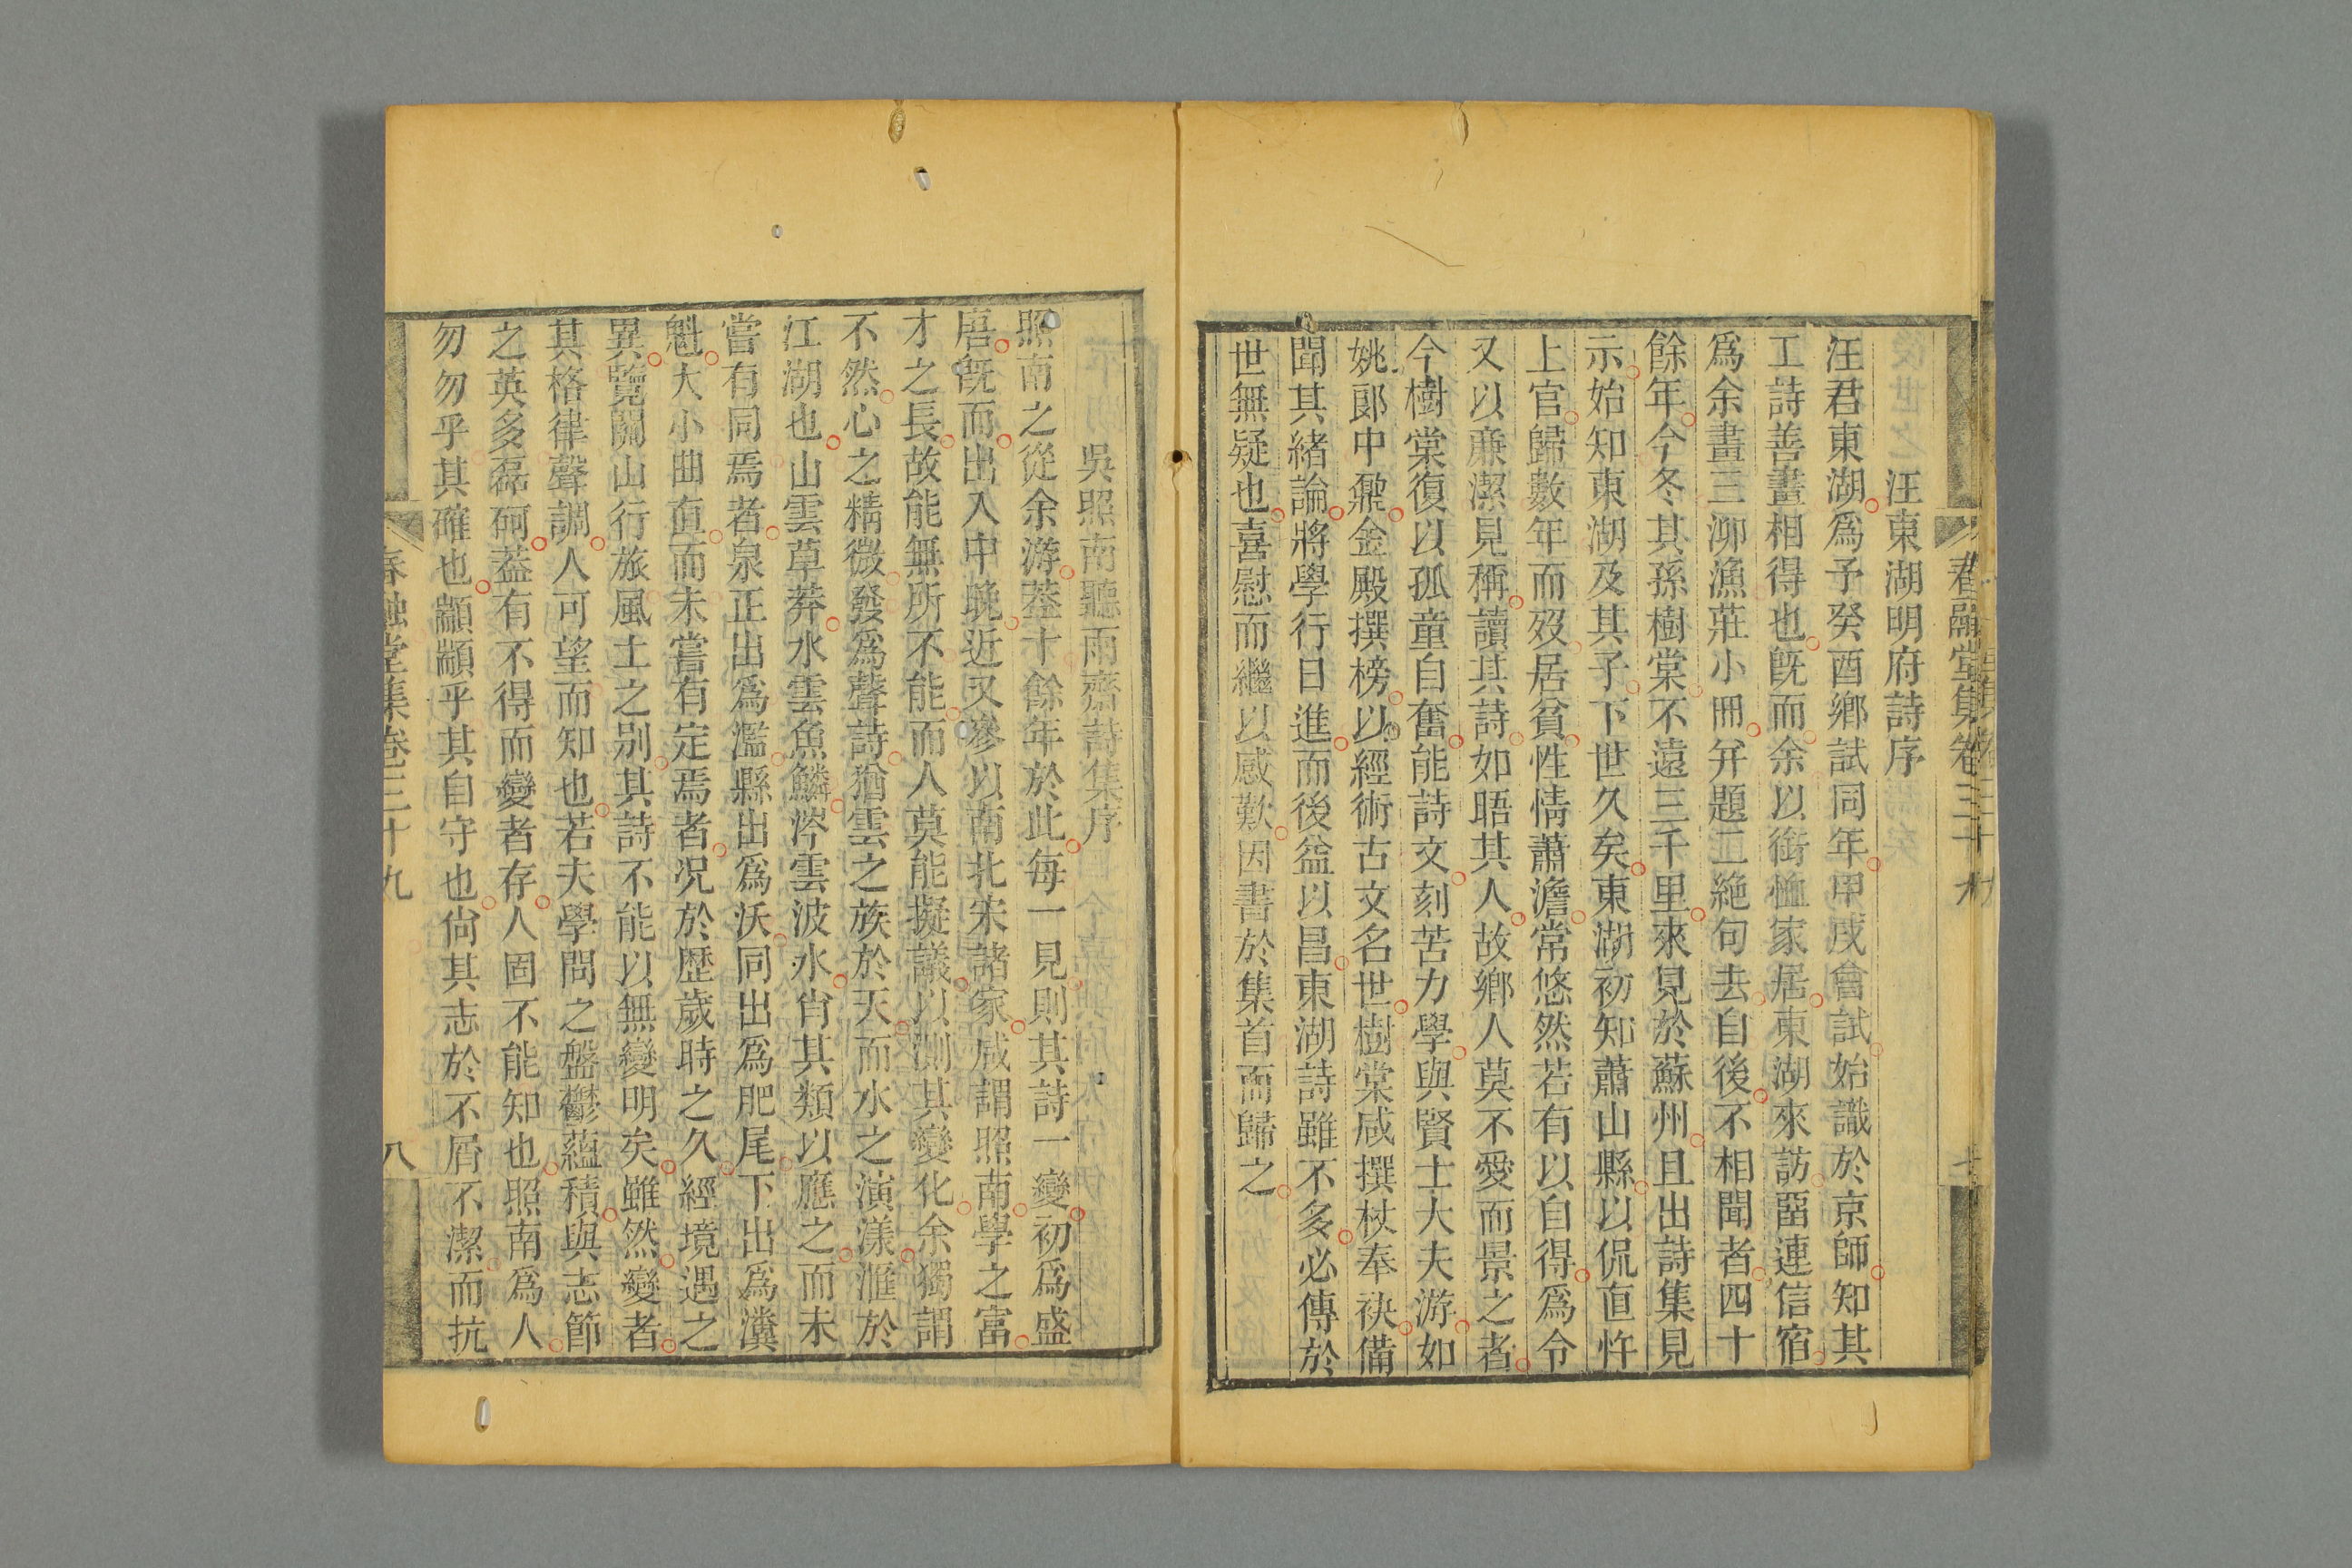 春融堂集卷三十九
七
汪東湖明府詩序
汪君東湖爲予癸酉鄉試同年甲戌會試始識於京師知其
工詩善畫相得也旣而余以銜恤家居東湖來訪畱連信宿
爲余畫三泖漁莊小冊并題二絶句去自後不相聞者四十
餘年今冬其孫樹棠不遠三千里來見於蘇州且出詩集見
示始知東湖及其子下世久矣東湖初知蕭山縣以侃直忤
上官歸數年而歿居貧性情蕭澹常悠然若有以自得爲令
又以亷潔見稱讀其詩如晤其人故鄉人莫不愛而景之者
今樹棠復以孤童自奮能詩文刻苦力學與賢士大夫游如
姚郞中鼐金殿撰榜以經術古文名世樹棠咸撰杖奉袂備
聞其緒論將學行日進而後益以昌東湖詩雖不多必傳於
世無疑也喜慰而繼以感歎因書於集首而歸之
吳照南聽雨齋詩集序
照南之從余游葢十餘年於此每一見則其詩一變初爲盛
唐旣而出入中晚近又參以南北宋諸家咸謂照南學之富
才之長故能無所不能而人莫能擬議以測其變化余獨謂
不然心之精微發爲聲詩猶雲之族於天而水之演漾滙於
江湖也山雲草莽水雲魚鱗涔雲波水肖其類以應之而未
嘗有同焉者泉正出爲濫縣出爲沃同出爲肥尾下出爲瀵
魁大小曲直而未嘗有定焉者况於歴歲時之久經境遇之
異覽關山行旅風土之别其詩不能以無變明矣雖然變者
其格律聲調人可望而知也若夫學問之盤鬱蘊積與志節
之英多磊砢葢有不得而變者存人固不能知也照南爲人
勿勿乎其確也顓顓乎其自守也尙其志於不屑不潔而抗
春融堂集卷三十九
八